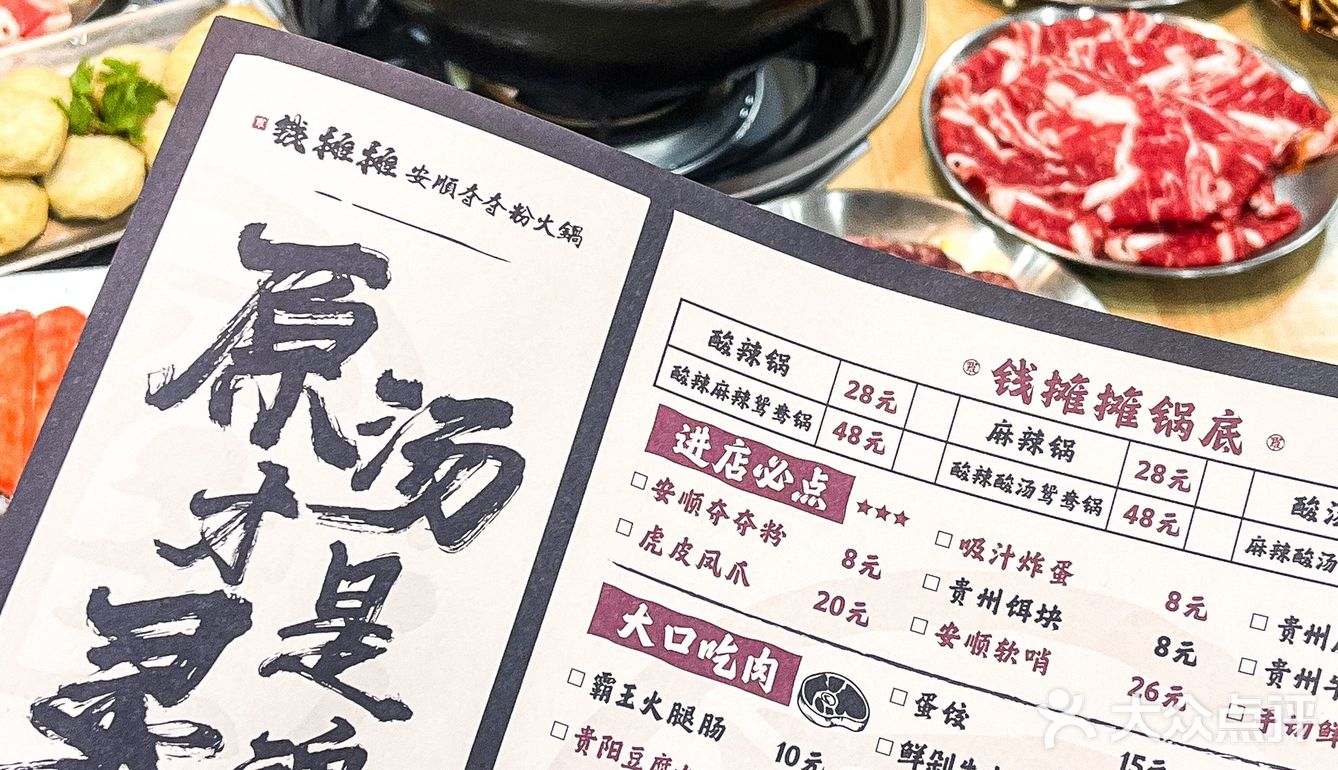 钱摊摊 安順夺夺粉火鍋
原汤
才是
钱摊摊锅底
酸辣锅 28元
麻辣锅 28元
酸辣麻辣鸳鸯锅 48元
酸辣酸汤鸳鸯锅 48元
麻辣酸汤
进店必点
安顺夺夺粉 8元
吸汁炸蛋 8元
虎皮凤爪 20元
贵州饵块 8元
贵州
安顺软哨 26元
贵州
大口吃肉
霸王火腿肠 10元
蛋饺 15元
手切鲜
贵阳豆腐
鲜剁牛
大众点评